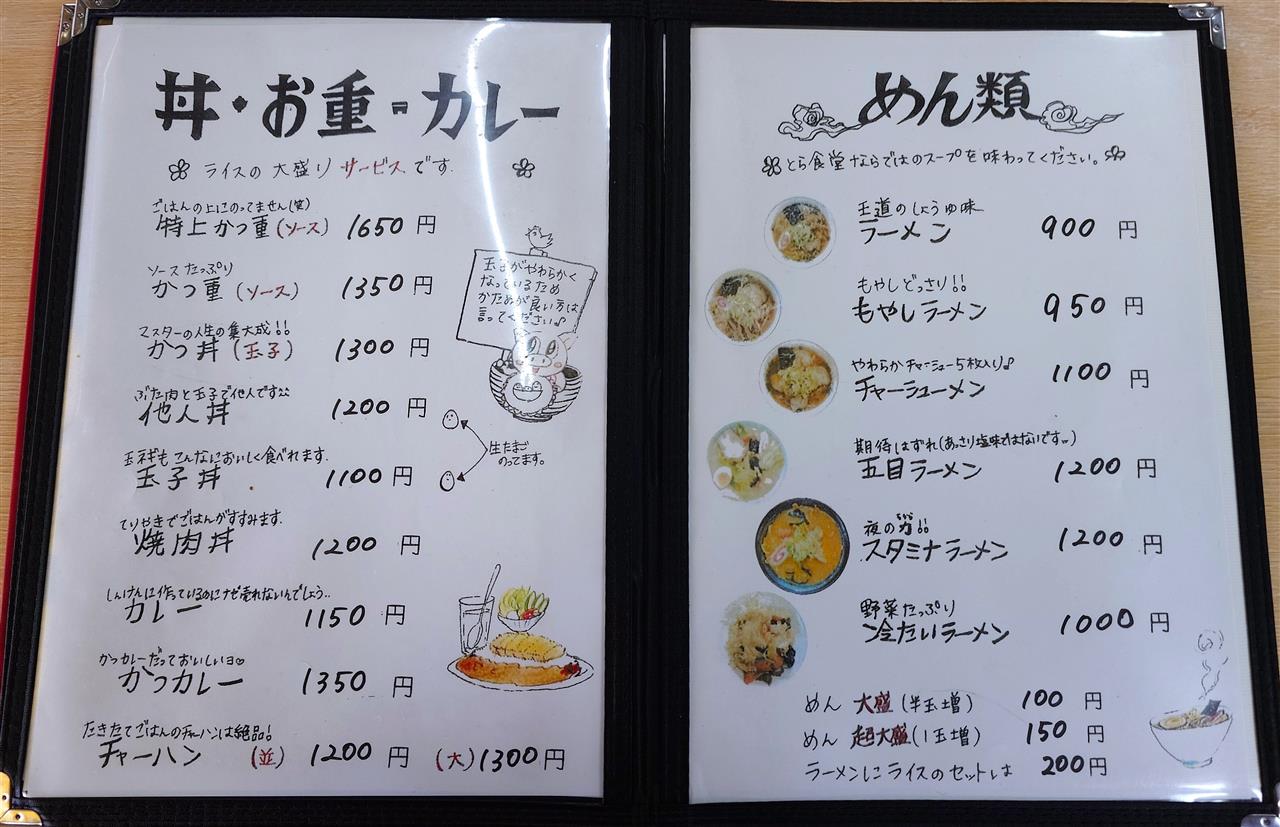 丼・お重・カレー
ライスの大盛りサービスです.
ごはんの上にのってません(笑)
特上かつ重(ソース) 1650円
ソースたっぷり
かつ重(ソース) 1350円
マスターの人生の集大成!!
かつ丼(玉子) 1300円
ぶた肉と玉子で他人です
他人丼 1200円
玉ネギもこんなにおいしく食べれます.
玉子丼 1100円
てりやきでごはんがすすみます.
焼肉丼 1200円
しんけんに作っているのにナゼ売れないんでしょう..
カレー 1150円
かつカレーだっておいしいヨ♡
かつカレー 1350円
たきたてごはんのチャーハンは絶品!
チャーハン (並) 1200円 (大) 1300円
玉子がやわらかく
なっているため
かためが良い方は
言ってください♪
生たまご
のってます。
めん類
とら食堂ならではのスープを味わってください。
王道のしょうゆ味
ラーメン 900円
もやしどっさり!!
もやしラーメン 950円
やわらかチャーシュー5枚入り♪
チャーシューメン 1100円
期待はずれ(あっさり塩味ではないです)
五目ラーメン 1200円
夜の力!!
スタミナラーメン 1200円
野菜たっぷり
冷たいラーメン 1000円
めん 大盛(半玉増) 100円
めん 超大盛(1玉増) 150円
ラーメンにライスのセットは 200円